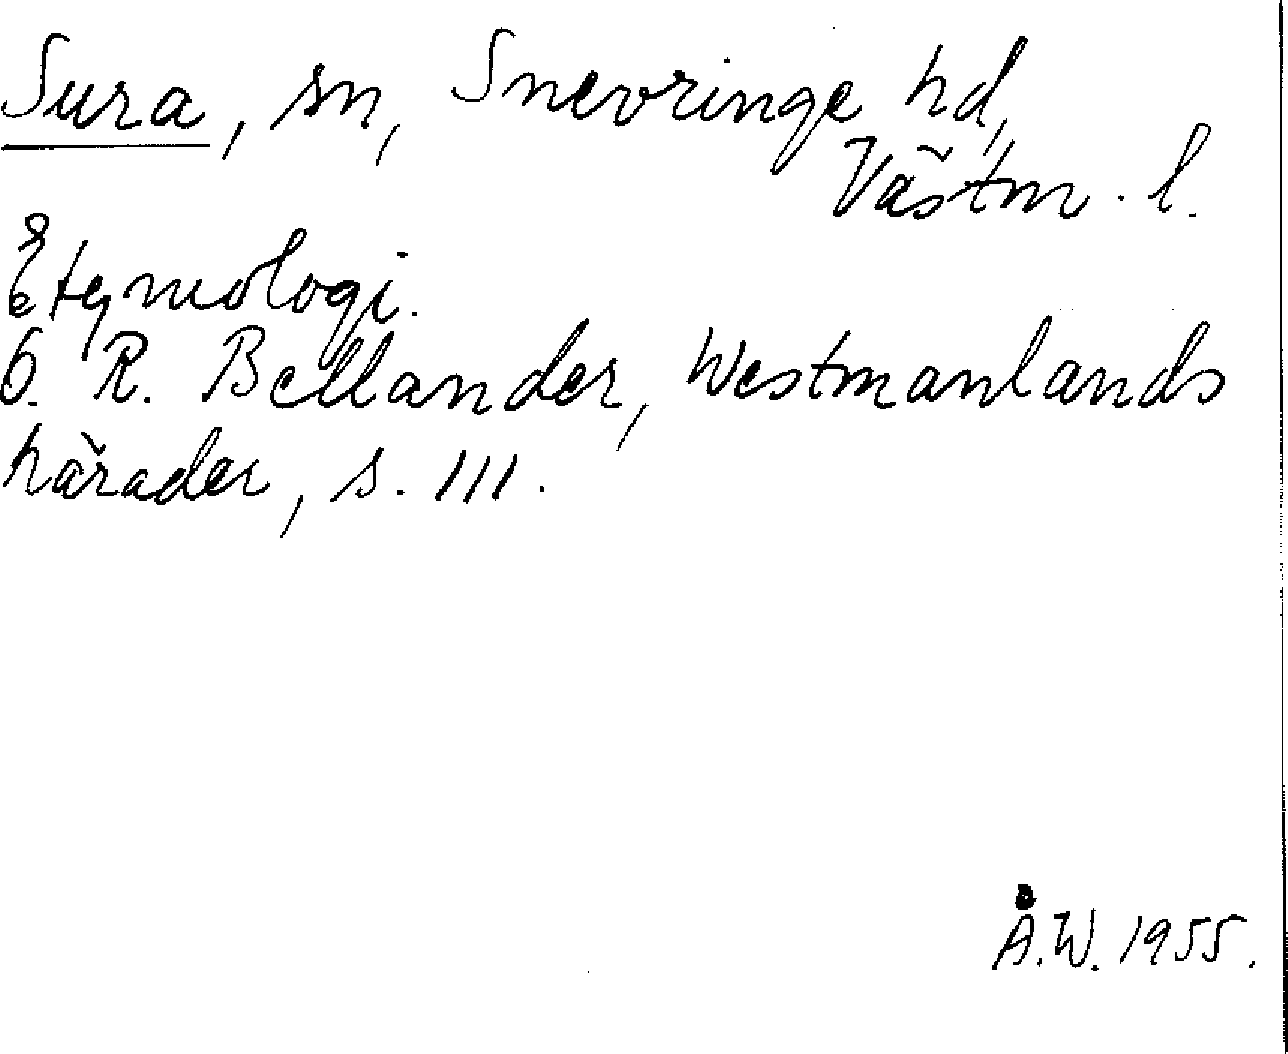 Sura, sn, Snevringe hd,
Västm. l.
Etymologi.
O. R. Bellander, Westmanlands
härader, s. 111.
Å.W. 1955.